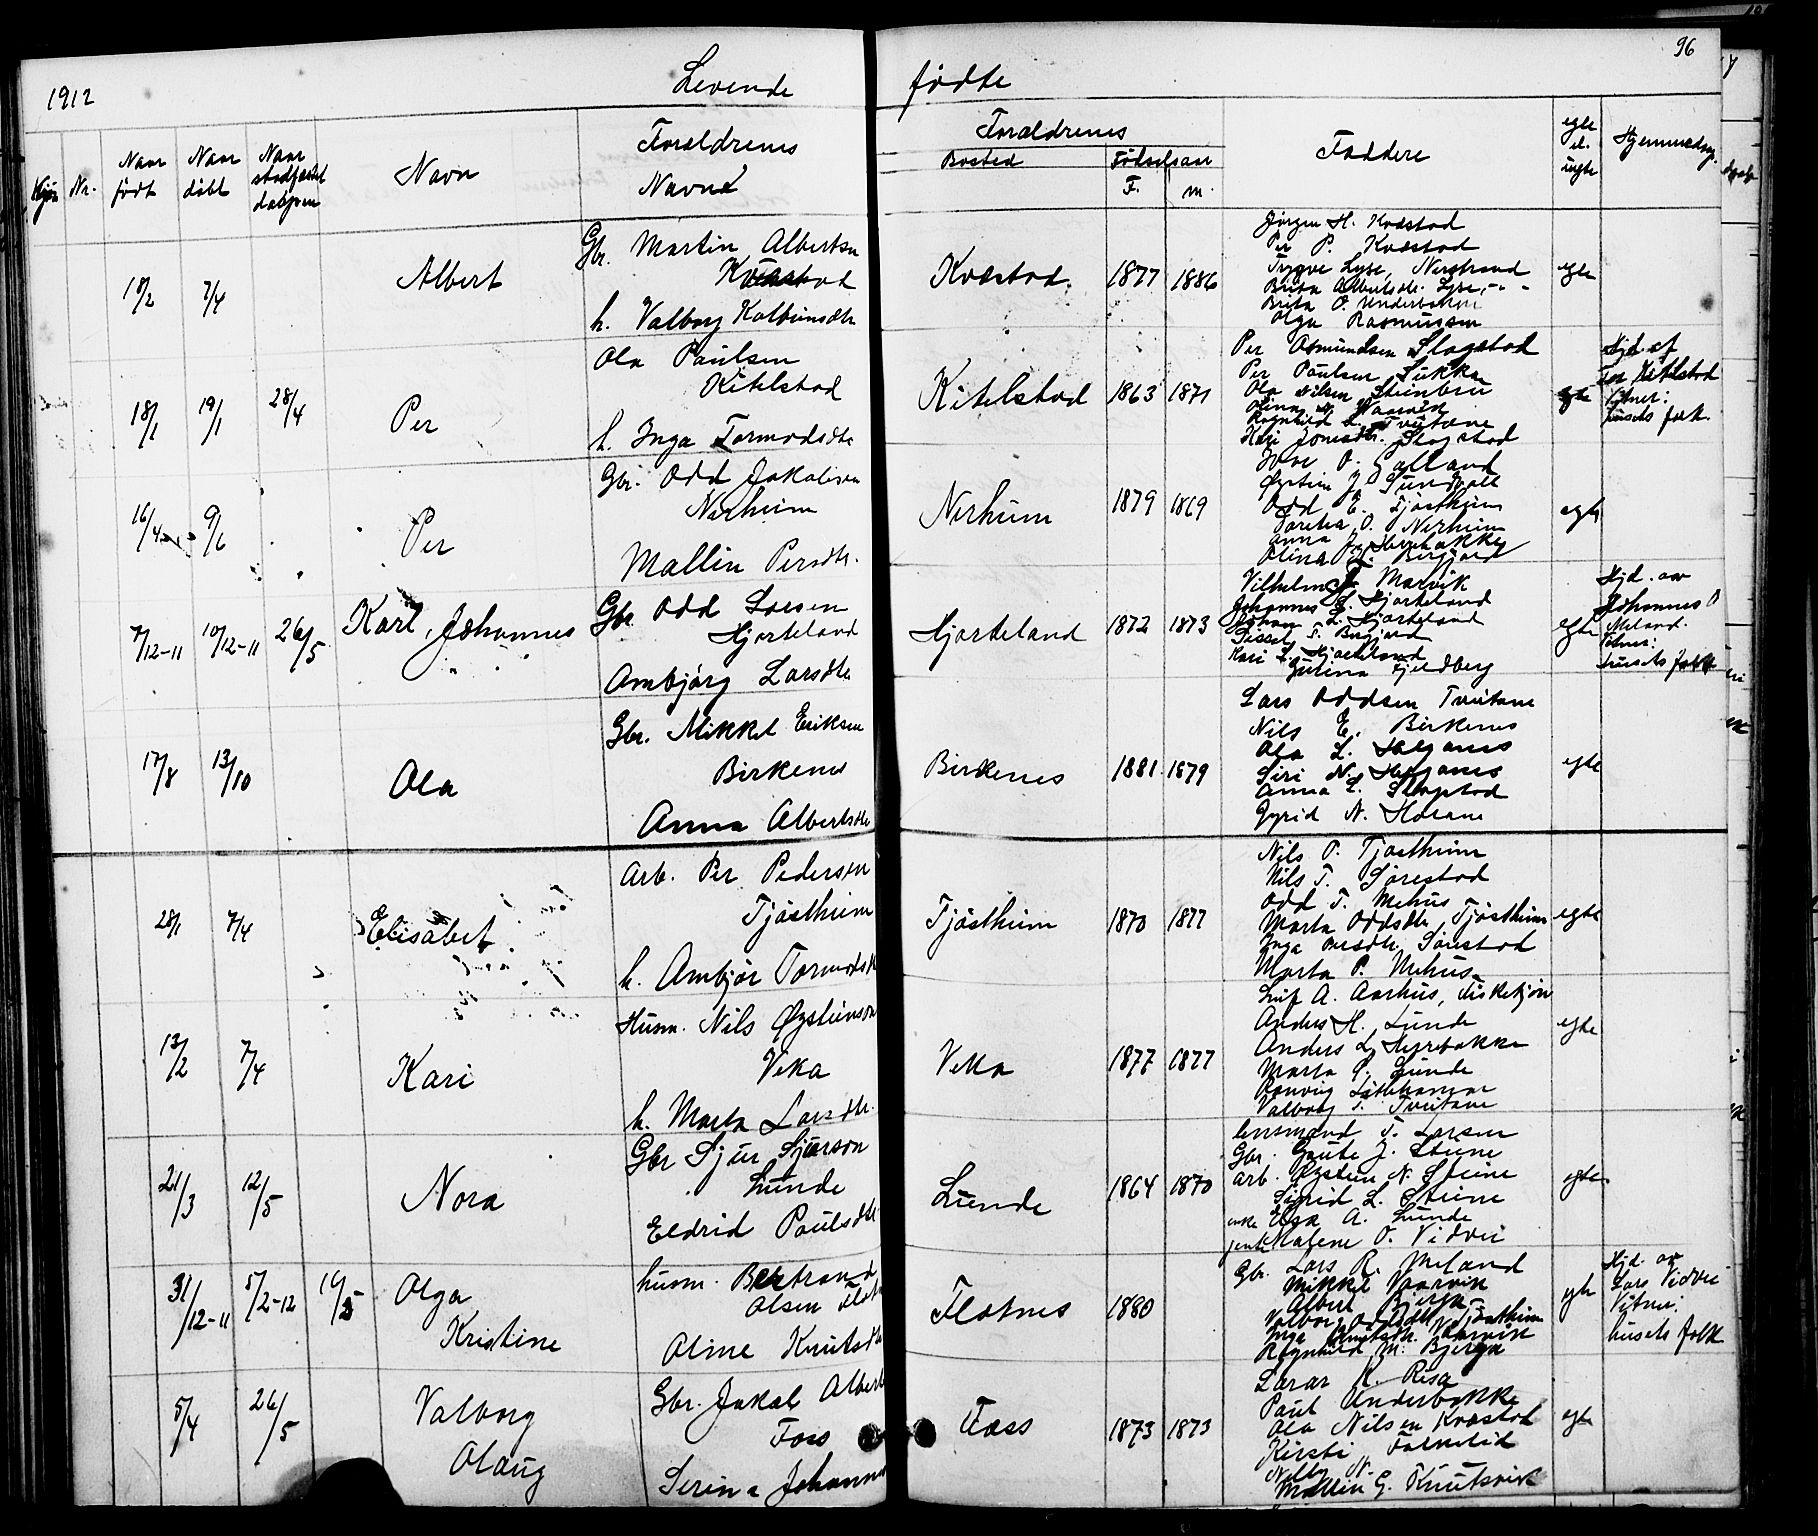 1912
Levende
fødte
96
Kjøn
Nr.
Naar født
Naar døbt
Naar stadfæstet daapen
Navn
Forældrenes Navne
Forældrenes
Bosted
Fødselsaar
F.
m.
Faddere
egte el. uegte
Hjemmedaap.
18/2
7/4
Albert
Gbr. Martin Albertsen
Kvæstad
h. Valborg Kolbeinsdtr
Kvæstad.
1877
1886
Jørgen H. Kvæstad
Per P. Kvæstad
Trygve Lyse, Nerstrand
Brita Albertsdtr. Lyse, - " -
Brita O. Underbakke
Olga Rasmussen
egte
18/1
19/1
28/4
Per
Ola Paulsen
Kitelstad
h. Inga Tormodsdtr
Kitelstad
1863
1871
Per Osmundsen Slogstad
Per Paulsen Sukka
Ola Nilsen Steinbru
Ragnhild L. Tveitane
Kari Jonasdtr. Slogstad
egte
Hjd. af
Tor Kitelstad
Vitner:
husets folk
16/4
9/6
Per
Gbr. Odd Jakobsen
Nerheim
Mallin Persdtr.
Nerheim
1879
1869
Iver O. Galland
Øystein J. Sundvoll
Odd E. Tjøstheim
Torthea O. Nerheim
Anna J. Herrebakke
Olina P. Bergjord
egte
7/12-11
10/12-11
26/5
Karl, Johannes
Gbr. Odd Larsen
Hjorteland
Ambjørg Larsdtr
Hjorteland
1872
1873
Vilhelm T. Marvik
Johannes L. Hjorteland
Johan L. Hjorteland
Sissel T. Bergjord
Kari L. Hjorteland
Gurina Fjeldberg
egte
Hjd. av
Johannes O
Meland.
Vitner:
husets folk
17/8
13/10
Ola
Gbr. Mikkel Eriksen
Birkenes
Anna Albertsdtr
Birkenes
1881
1879
Lars Oddsen Tveitane
Nils E. Birkenes
Ola L. Helganes
Siri N. Helganes
Anna L. Slogstad
Gyrid N. Horane
egte
28/1
7/4
Elisabet
Arb. Per Pedersen
Tjøstheim
h. Ambjør Tormodsdtr
Tjøstheim
1870
1877
Nils P. Tjøstheim
Nils T. Sørestad
Odd T. Mehus
Marta Oddsdtr Tjøstheim
Inga Persdtr Sørestad
Marta P. Mehus
egte
13/2
7/4
Kari
Husm. Nils Øysteinson
Veka
h. Marta Larsdtr.
Veka
1877
1877
Leif A. Aarhus,
Anders H. Lunde
Anders L. Herrebakke
Marta P. Lunde
Ranveig Litlehamar
Valborg T. Tveitane
egte
21/3
12/5
Nora
Gbr Sjur Sjurson
Lunde
Eldrid Paulsdtr
Lunde
1864
1870
lensmand T. Larsen
Gbr. Gaute J. Steine
arb. Øystein N. Steine
Sigrid L. Steine
enke Elsa A. Lunde
jente Malene O. Vidvei
egte
31/12-11
5/2-12
16/5
Olga
Kristine
husm. Bertrand
Olsen
Oline Knutsdtr
Flotnes
1880
Gbr. Lars R. Meland
Mikkel Vaarvik
Albert Bjerga
Valborg Oddsdtr Tjøstheim
Inga Vaarvik
Ragnhild M. Bjerga
egte
Hjd. av
Lars Vidvei
Vitner:
husets folk
5/4
26/5
Valborg
Olaug
Gbr. Jakob Albert
Foss
Serina Johannes
Foss
1873
1873
Lavar K. Risa
Paul Underbakke
Ola Nilsen Kvæstad
Kirsti Falnelid
Nelly N.
Mallin G. Knutsvik
egte